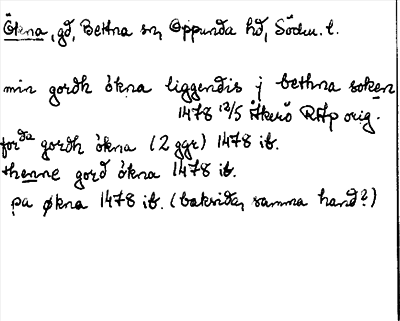 Ökna, gd, Bettna sn, Oppunda hd, Södm. l.
min gordh ökna liggendis j bethna soken
1478 12/5 Åkerö RAp orig.
forda gordh ökna (2 ggr) 1478 ib.
thenne gord ökna 1478 ib.
pa økna 1478 ib. (baksida, samma hand?)